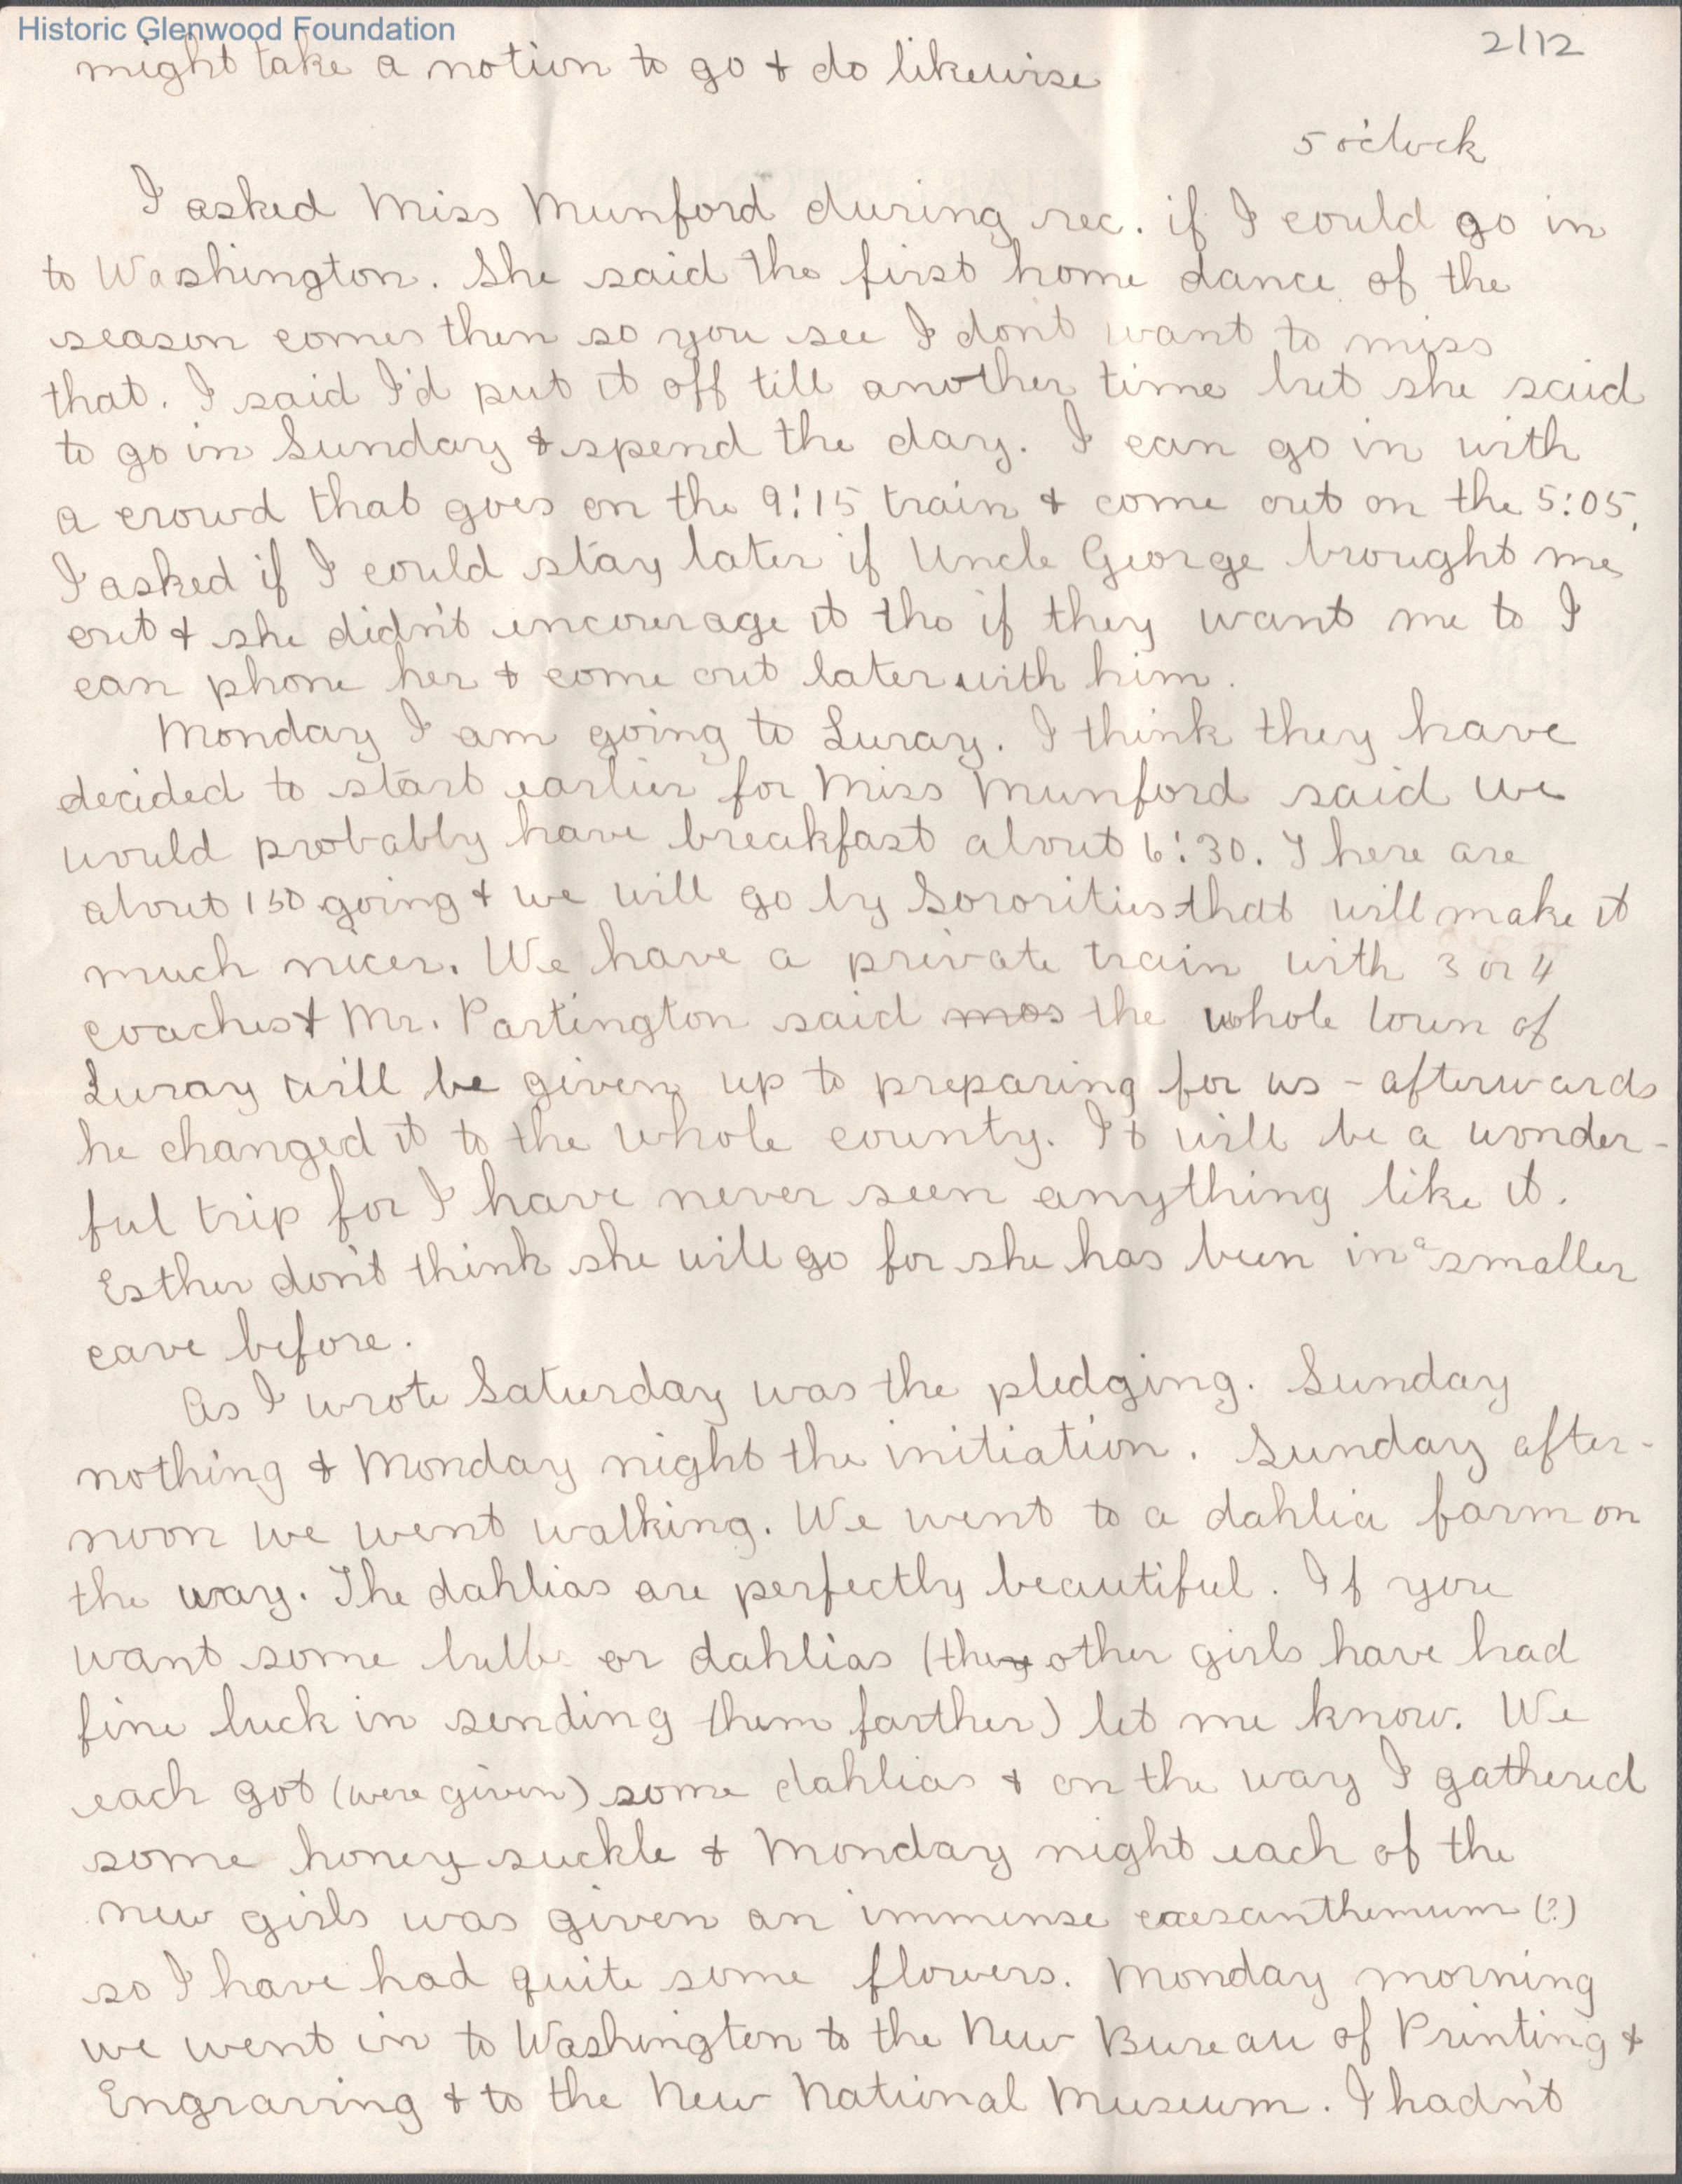 Historic Glenwood Foundation
2/12
might take a notion to go & do likewise
5 o'clock
I asked Miss Munford during rec. if I could go in
to Washington. She said the first home dance of the
season comes then so you see I don't want to miss
that. I said I'd put it off till another time but she said
to go in Sunday & spend the day. I can go in with
a crowd that goes on the 9:15 train & come out on the 5:05.
I asked if I could stay later if Uncle George brought me
out & she didn't encourage it tho if they want me to I
can phone her & come out later with him.
Monday I am going to Luray. I think they have
decided to start earlier for Miss Munford said we
would probably have breakfast about 6:30. There are
about 150 going & we will go by Sororities that will make it
much nicer. We have a private train with 3 or 4
coaches & Mr. Partington said mos the whole town of
Luray will be given up to preparing for us - afterwards
he changed it to the whole county. It will be a wonder-
ful trip for I have never seen anything like it.
Esther don't think she will go for she has been in a smaller
cave before.
As I wrote Saturday was the pledging. Sunday
nothing & Monday night the initiation. Sunday after-
noon we went walking. We went to a dahlia farm on
the way. The dahlias are perfectly beautiful. If you
want some bulbs or dahlias (they other girls have had
fine luck in sending them farther) let me know. We
each got (were given) some dahlias & on the way I gathered
some honey suckle & Monday night each of the
new girls was given an immense (?)
so I have had quite some flowers. Monday morning
we went in to Washington to the New Bureau of Printing &
Engraving & to the New National Museum. I hadn't